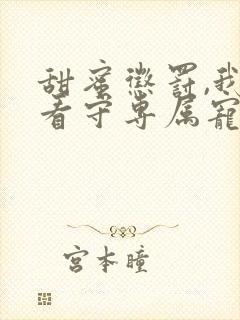 甜蜜懲罰,我
看守專属寵
宮本瞳